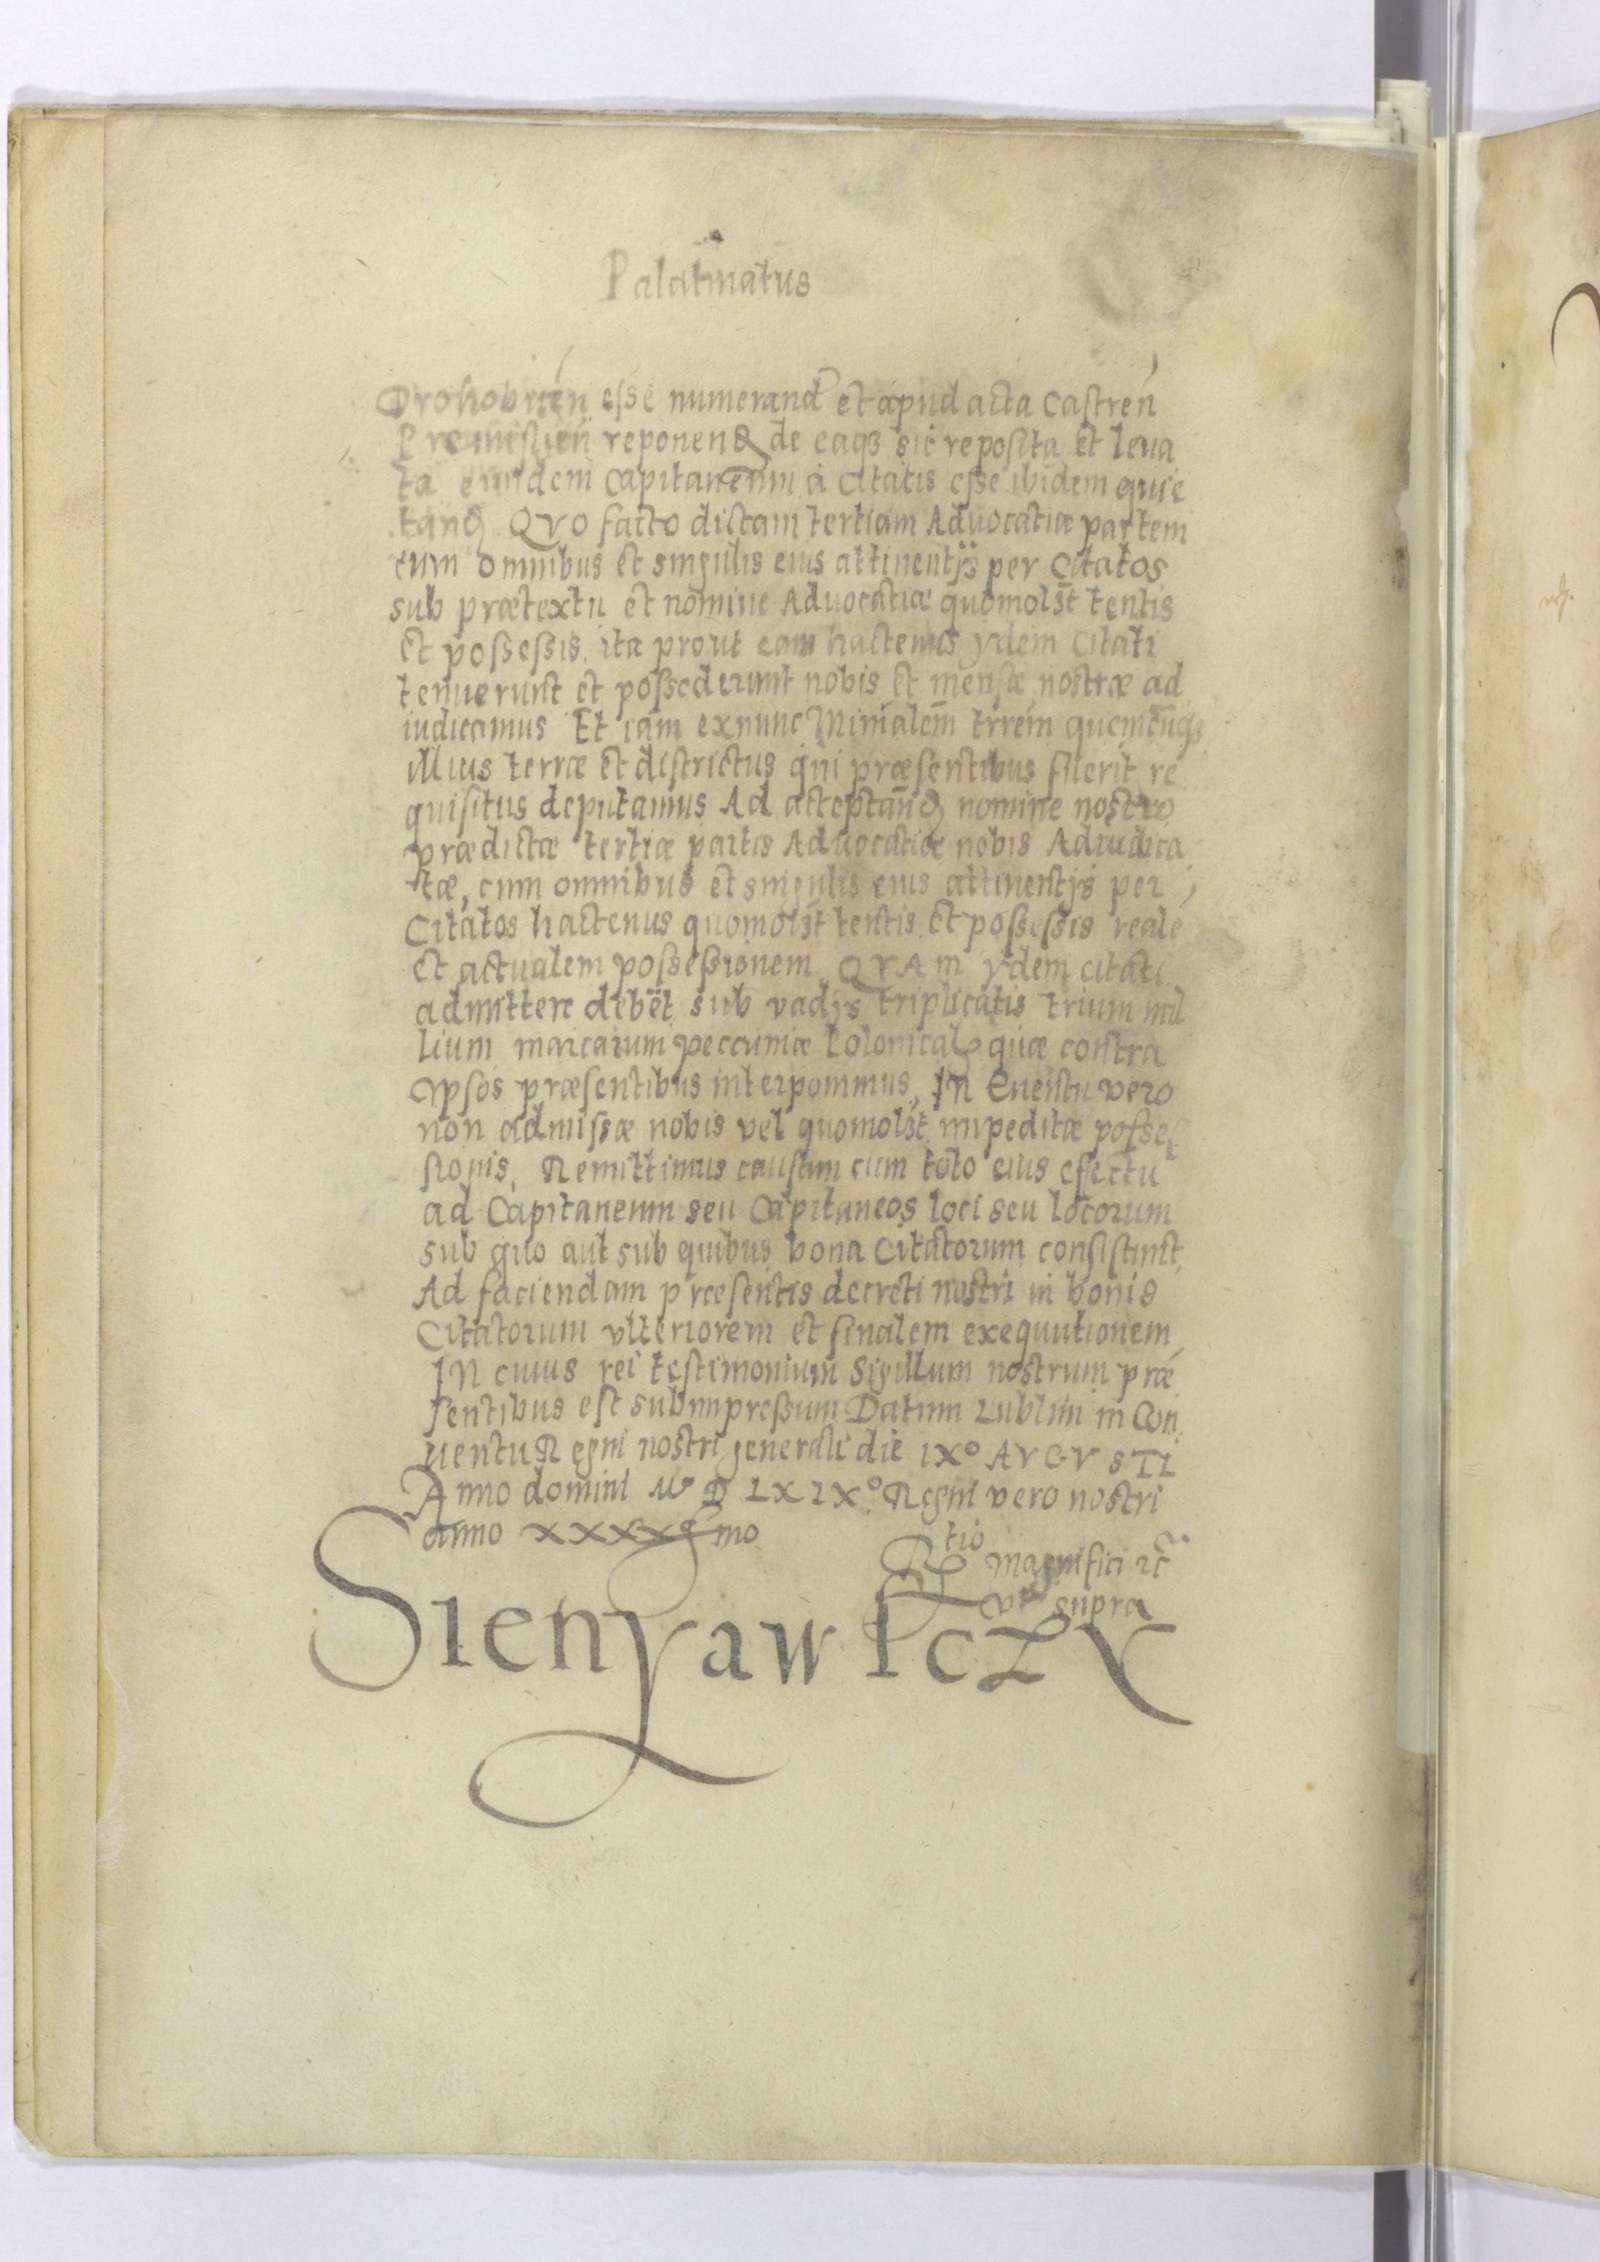 Palatinatus
Drohobicen esse numerand et apud acta Castren
Premislien reponend de eaqз sic reposita et leua
ta eundem Capitaneum à Citatis esse ibidem quie
tand QVO facto dictam tertiam Aduocatiæ partem
cum omnibus et singulis eius attinentijs per Citatos
sub prætextu et nomine Aduocatiæ quomolзt tentis
et possessis, ita prout eam hactenus ydem Citati
tenuerunt et possederunt nobis et mensæ nostræ ad
iudicamus Et iam exnunc Minialem trrem quemcunqз
illius terræ et districtus qui præsentibus fuerit re
quisitus deputamus Ad acceptand nomine nostro
prædictæ tertiæ partis Aduocatiæ nobis Adiudica
tæ, cum omnibus et singulis eius attinentijs per
Citatos hactenus quomolзt tentis et possessis reale
et actualem possessionem QVAm ydem citati
admittere debet sub vadijs triplicatis trium mil
lium marcarum peccuniæ Polonical quæ contra
ypsos præsentibus interponimus, IN Euentu vero
non admissæ nobis vel quomolзt impeditæ posses
sionis, Remittimus causam cum toto eius efectu
ad Capitaneum seu Capitaneos loci seu locorum
sub quo aut sub quibus bona Citatorum consistunt
Ad faciendam præsentis decreti nostri in bonis
Citatorum vlteriorem et finalem exequutionem
IN cuius rei testimonium Sigillum nostrum præ
sentibus est subimpressum Datum Lublini in Con
uentu Regni nostri generali die IXº AVGVSTI
Anno domini Mº D LXIXº Regni vero nostri
anno XXXX mo
Rtio Magnifici
vt supra
SIENYAWICZY